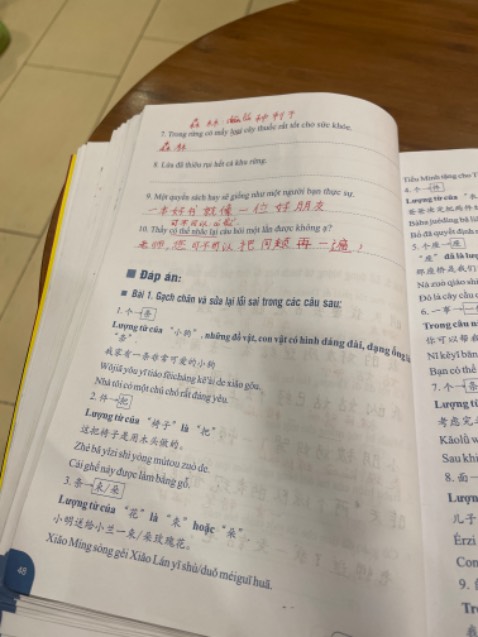 森林
7. Trong rừng có mấy loại cây thuốc rất tốt cho sức khỏe.
森林
8. Lửa đã thiêu rụi hết cả khu rừng.
9. Một quyển sách hay sẽ giống như một người bạn thực sự.
一本好书就像一位好朋友
可不可以
10. Thầy có thể nhắc lại câu hỏi một lần được không ạ?
老师,您可不可以把问题再一遍
Đáp án:
Bài 1. Gạch chân và sửa lại lỗi sai trong các câu sau:
1. 个→条
Lượng từ của “小狗”, những đồ vật, con vật có hình dáng dài, dạng ống là
“条”.
我家有一条非常可爱的小狗
Wǒjiā yǒu yī tiáo fēicháng kě'ài de xiǎo gǒu.
Nhà tôi có một chú chó rất đáng yêu.
2. 件→把
Lượng từ của “椅子” là “把”
这把椅子是用木头做的。
Zhè bǎ yǐzi shì yòng mùtou zuò de.
Cái ghế này được làm bằng gỗ.
3. 条→束/朵
Lượng từ của “花” là “束” hoặc “朵”.
小明送给小兰一束/朵玫瑰花。
Xiǎo Míng sòng gěi Xiǎo Lán yī shù/duǒ méiguī huā.
48
Tiểu Minh tặng cho T
4. 个→
Lượng từ của
Bố đã quyết định
5. 个座→座
“座” đã là lượ
那座桥是我们
Nà zuò qiáo shì
Đó là cây cầu c
6. 一事→
Trong câu n
你可以帮我
Nǐ kěyǐ bān
Bạn có thể
7. 个→条
Lượng từ
考虑完
Kǎolǜ w
Sau khi
8. 面→
Lượn
儿子
Érzi
Con
9.
Trư
我